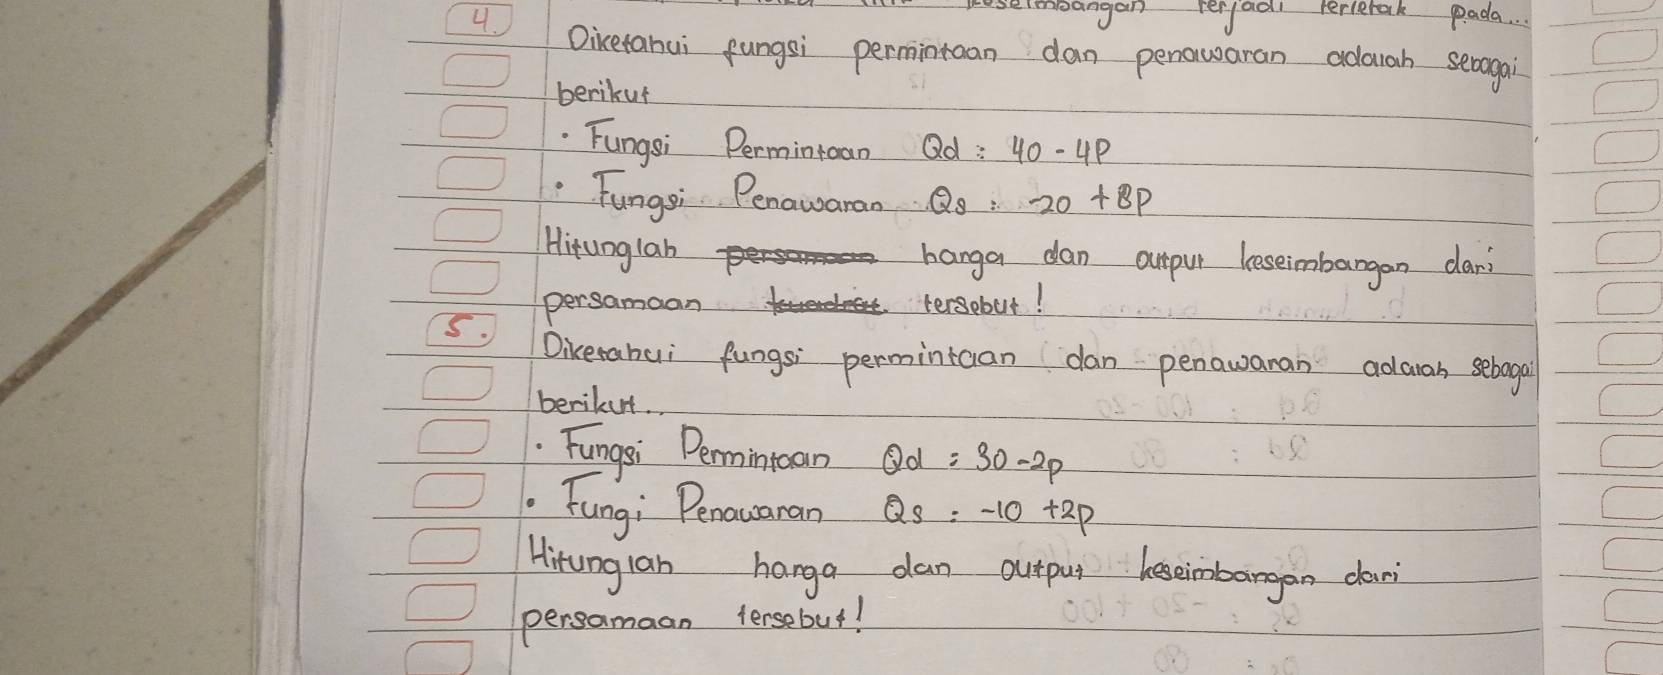 keseimbangan terjadi terletak pada...
4. Diketahui fungsi permintaan dan penawaran adalah sebagai
berikut
• Fungsi Permintaan Qd = 40 - 4P
• Fungsi Penawaran Qs = -20 + 8P
Hitunglah harga dan output keseimbangan dari
persamaan tersebut!
5. Diketahui fungsi permintaan dan penawaran adalah sebagai
berikut..
• Fungsi Permintaan Qd = 30 - 2p
• Fungi Penawaran Qs = -10 + 2p
Hitunglah harga dan output keseimbangan dari
persamaan tersebut!